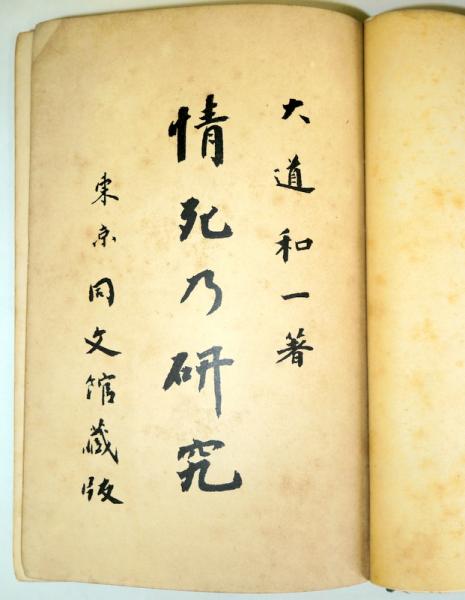 大道和一著
情死乃研究
東京同文館蔵版